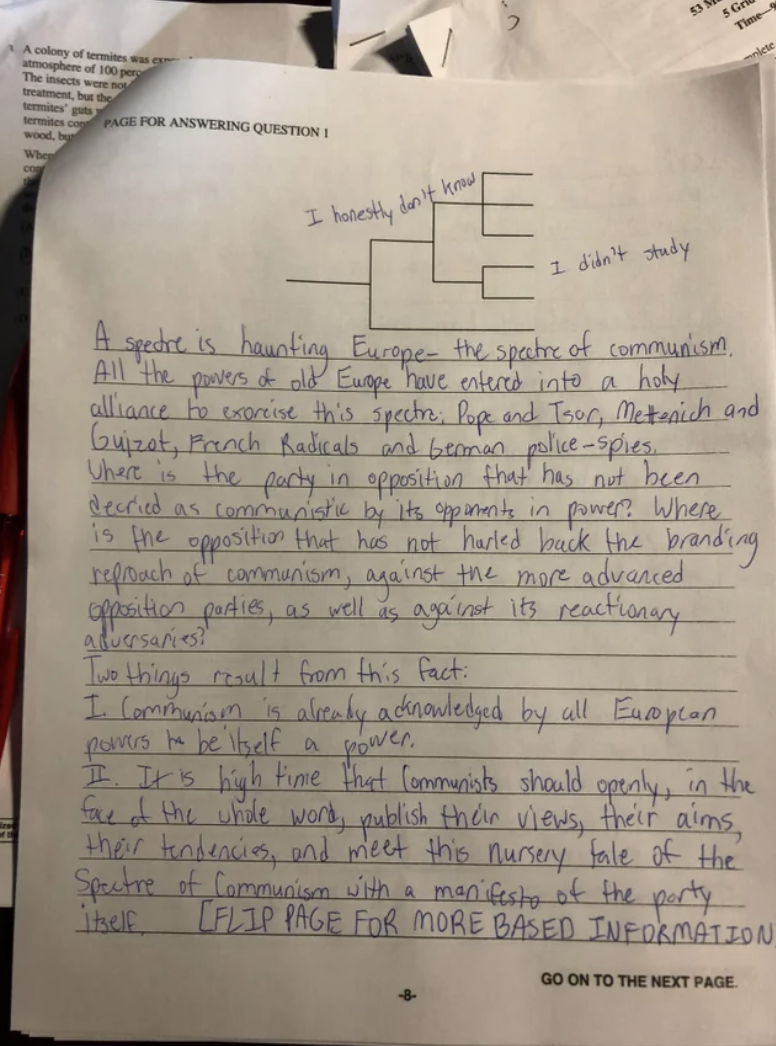 53
5 Gri
Time—9
mplete
A colony of termites was
atmosphere of 100 perc
The insects were not
treatment, but the
termites' guts
termites con
wood, bu
When
PAGE FOR ANSWERING QUESTION 1
I honestly don't know
I didn't study
A spectre is haunting Europe– the spectre of communism.
All the powers of old Europe have entered into a holy
alliance to exorcise this spectre; Pope and Tsar, Mettenich and
Guizot, French Radicals and German police-spies.
Where is the party in opposition that has not been
decried as communistic by its opponents in power? Where
is the opposition that has not hurled back the branding
reproach of communism, against the more advanced
opposition parties, as well as against its reactionary
adversaries?
Two things result from this fact:
I. Communism is already acknowledged by all European
powers to be itself a power.
II. It is high time that Communists should openly, in the
face of the whole word, publish their views, their aims,
their tendencies, and meet this nursery tale of the
Spectre of Communism with a manifesto of the party
itself. [FLIP PAGE FOR MORE BASED INFORMATION
GO ON TO THE NEXT PAGE.
-8-